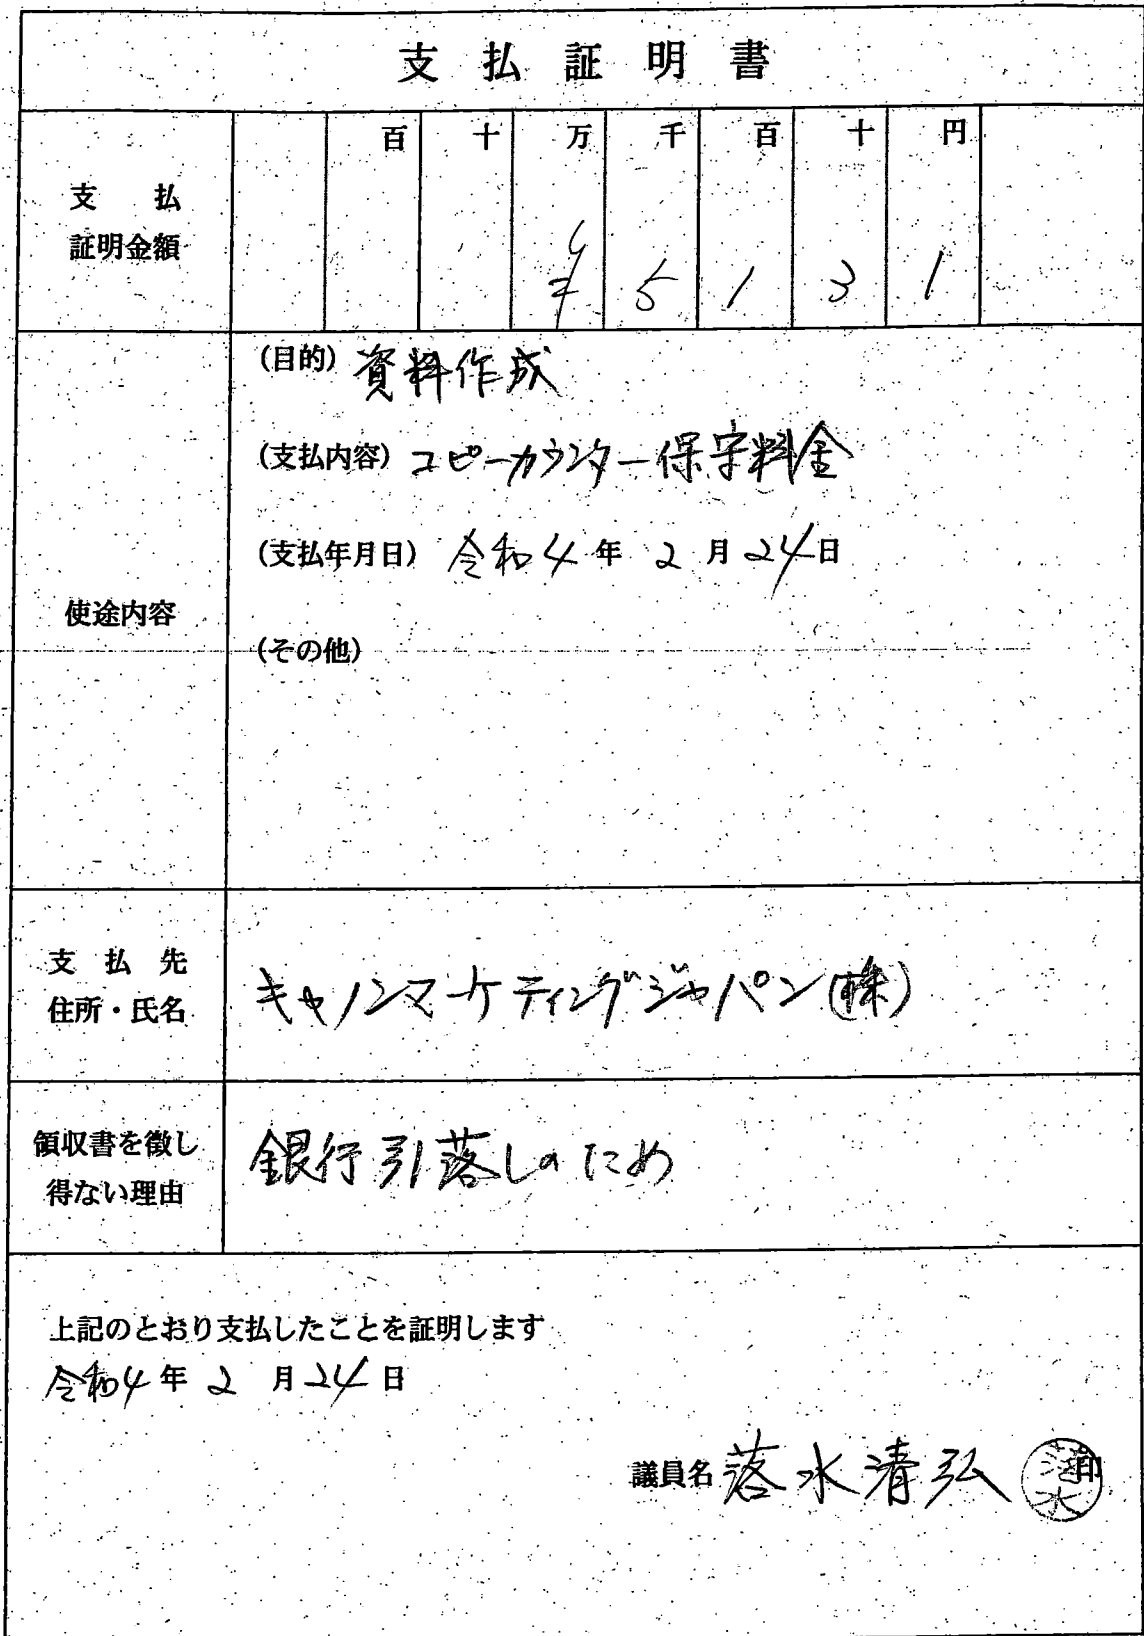 支払証明書
百 十 万 千 百 十 円
支払
証明金額
¥ 5 1 3 1
(目的) 資料作成
(支払内容) コピーカウンター保守料金
(支払年月日) 令和4年 2月24日
使途内容
(その他)
支払先
住所・氏名
キヤノンマーケティングジャパン(株)
領収書を徴し
得ない理由
銀行引落しのため
上記のとおり支払したことを証明します
令和4年 2月24日
議員名 落水清弘 印
落水